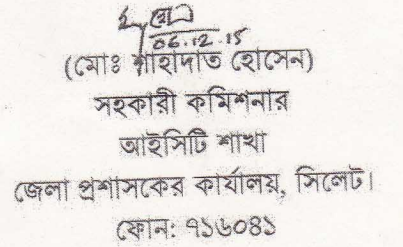 06.12.15
(মোঃ শাহাদাত হোসেন)
সহকারী কমিশনার
আইসিটি শাখা
জেলা প্রশাসকের কার্যালয়, সিলেট।
ফোন: ৭১৬০৪১